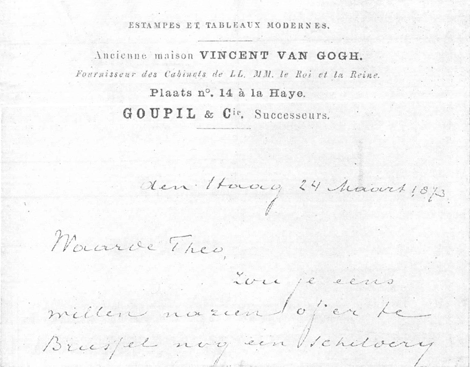 ESTAMPES ET TABLEAUX MODERNES.
Ancienne maison VINCENT VAN GOGH.
Fournisseur des Cabinets de LL. MM. le Roi et la Reine.
Plaats nº. 14 à la Haye.
GOUPIL & Cie. Successeurs.
den Haag 24 Maart 1873.
Waarde Theo,
Zou je eens
willen nazien of er te
Brussel nog een schilderij